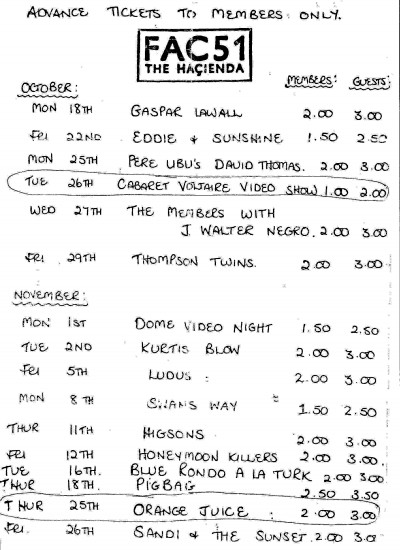 ADVANCE TICKETS TO MEMBERS ONLY.
FAC51
THE HAÇIENDA
MEMBERS: GUESTS:
OCTOBER:
MON 18TH GASPAR LAWALL 2.00 3.00
FRI 22ND EDDIE & SUNSHINE 1.50 2.50
MON 25TH PERE UBU'S DAVID THOMAS. 2.00 3.00
TUE 26TH CABARET VOLTAIRE VIDEO SHOW 1.00 2.00
WED 27TH THE MEMBERS WITH
J. WALTER NEGRO. 2.00 3.00
FRI 29TH THOMPSON TWINS. 2.00 3.00
NOVEMBER:
MON 1ST DOME VIDEO NIGHT 1.50 2.50
TUE 2ND KURTIS BLOW 2.00 3.00
FRI 5TH LUDUS : 2.00 3.00
MON 8TH SWANS WAY 1.50 2.50
THUR 11TH HIGSONS 2.00 3.00
FRI 12TH HONEYMOON KILLERS 2.00 3.00.
TUE 16TH. BLUE RONDO A LA TURK 2.00 3.00
THUR 18TH. PIGBAG 2.50 3.50
THUR 25TH ORANGE JUICE : 2.00 3.00
FRI. 26TH SANDI & THE SUNSET. 2.00 3.0